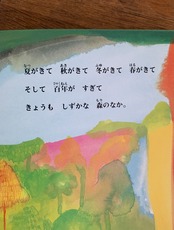 夏がきて 秋がきて 冬がきて 春がきて
そして 百年が すぎて
きょうも しずかな 森のなか。